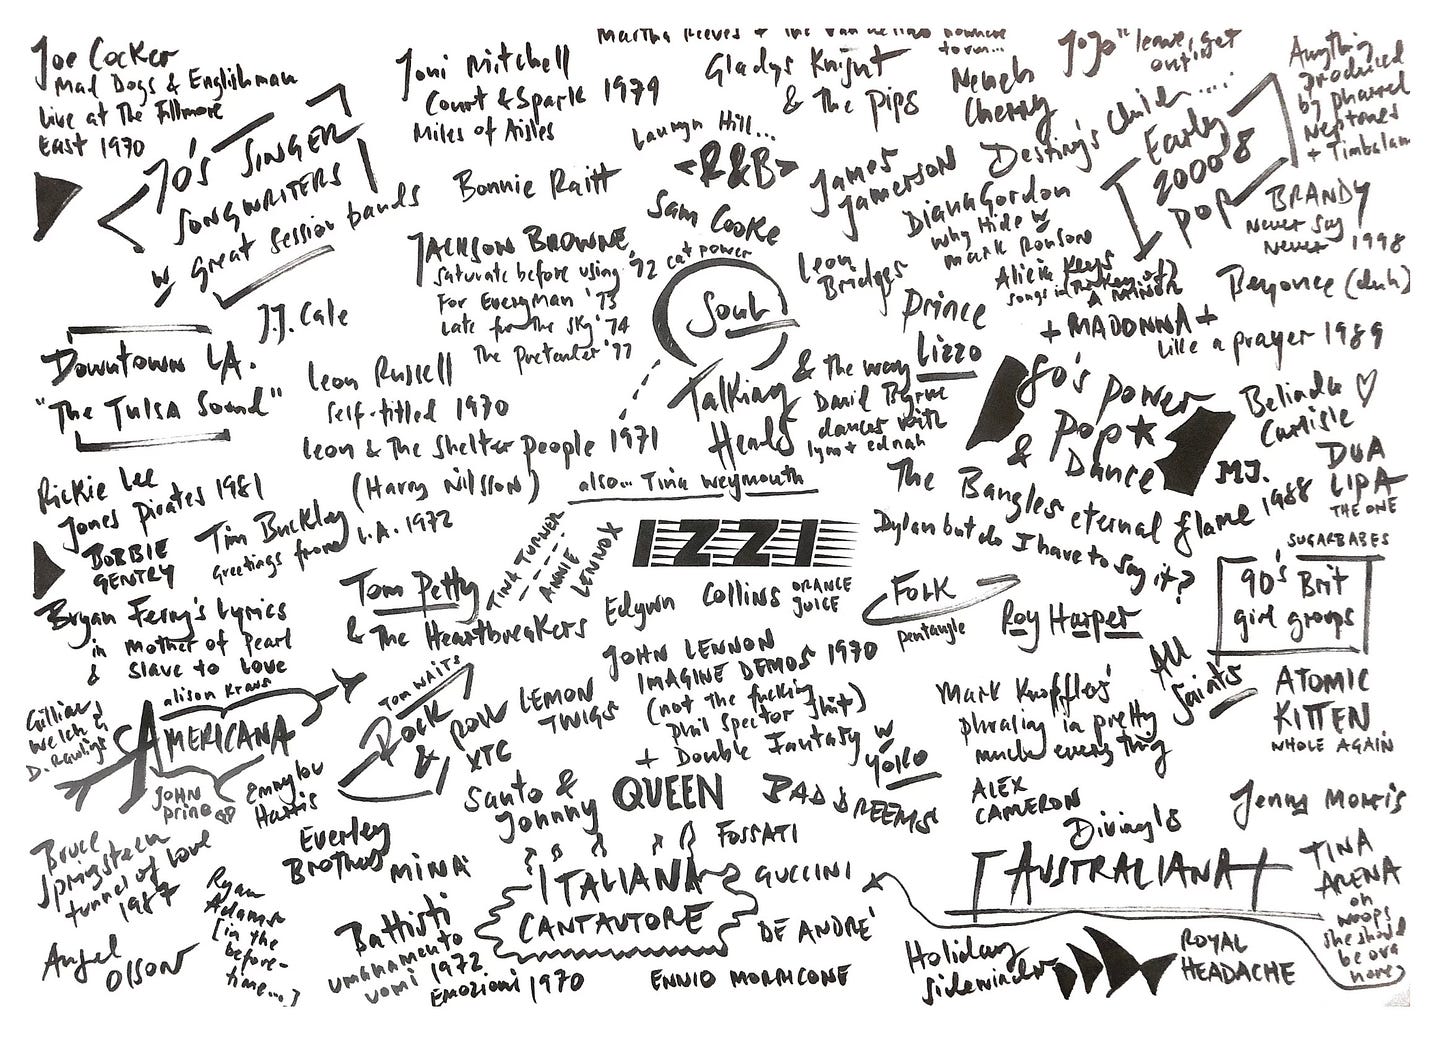 Joe Cocker
Mad Dogs & Englishman
Live at The Fillmore
East 1970
70's SINGER
SONGWRITERS
w great session bands
Joni Mitchell
Court & Spark 1979
Miles of Aisles
Bonnie Raitt
Martha Reeves + the Vandellas nowhere
to run...
Gladys Knight
& The Pips
Lauryn Hill...
<R&B>
Sam Cooke
cat power
Soul
Neneh
Cherry
JoJo "leave, get
out"
James
Jamerson
Destiny's Child....
Early
2000's
pop
Anything
produced
by pharrel
Neptunes
+ Timbalan
BRANDY
Never Say
Never 1998
Diana Gordon
Why Hide w
Mark Ronson
Leon
Bridges
Alicia Keys
Songs in
A MINOR
Beyonce (duh)
Prince
+ MADONNA +
Like a prayer 1989
JACKSON BROWNE
Saturate before using '72
For Everyman '73
Late for the sky '74
The Pretender '77
J.J. Cale
Downtown LA.
"The Tulsa Sound"
Leon Russell
Self-titled 1970
Leon & The Shelter people 1971
(Harry Nilsson)
Talking
Heads
& the way Lizzo
David Byrne
dances with
lynn & ednah
also... Tina Weymouth
80's power
pop★
& Dance
Belinda ♡
Carlisle
M.J.
DUA
LIPA
THE ONE
The Bangles eternal flame 1988
Dylan but do I have to say it?
Rickie Lee
Jones Pirates 1981
BOBBIE
GENTRY
Tim Buckley
Greetings from L.A. 1972
TINA TURNER
ANNIE
LENNOX
IZZI
Tom Petty
& The Heartbreakers
Edwyn Collins ORANGE
JUICE
FOLK
pentangle
Roy Harper
SUGARBABES
90's Brit
girl groups
All
Saints
ATOMIC
KITTEN
WHOLE AGAIN
Bryan Ferry's Lyrics
in mother of pearl
& slave to love
alison Kraus
AMERICANA
Gillian
Welch &
D. Rawlings
JOHN
prine
Emmylou
Harris
TOM WAITS
Rock
& ROLL
LEMON
TWIGS
XTC
JOHN LENNON
IMAGINE DEMOS 1970
(not the fucking
phil spector shit)
+ Double Fantasy w
YOKO
Mark Knopfler's
phrasing in pretty
much every thing
ALEX
CAMERON
Santo &
Johnny
QUEEN
BAD DREEMS
Divinyls
Jenny Morris
AUSTRALIANA
TINA
ARENA
on
woops
she should
be ova
here
Bruce
Springsteen
tunnel of love
1987
Everley
Brothers
MINA
FOSSATI
ITALIANA
CANTAUTORE
GUCCINI
DE ANDRE'
Ryan
Adams
[in the
before-
time...]
Angel
Olson
Battisti
umanamento
uomi 1972
Emozioni 1970
ENNIO MORRICONE
Holiday
Sidewinder
ROYAL
HEADACHE